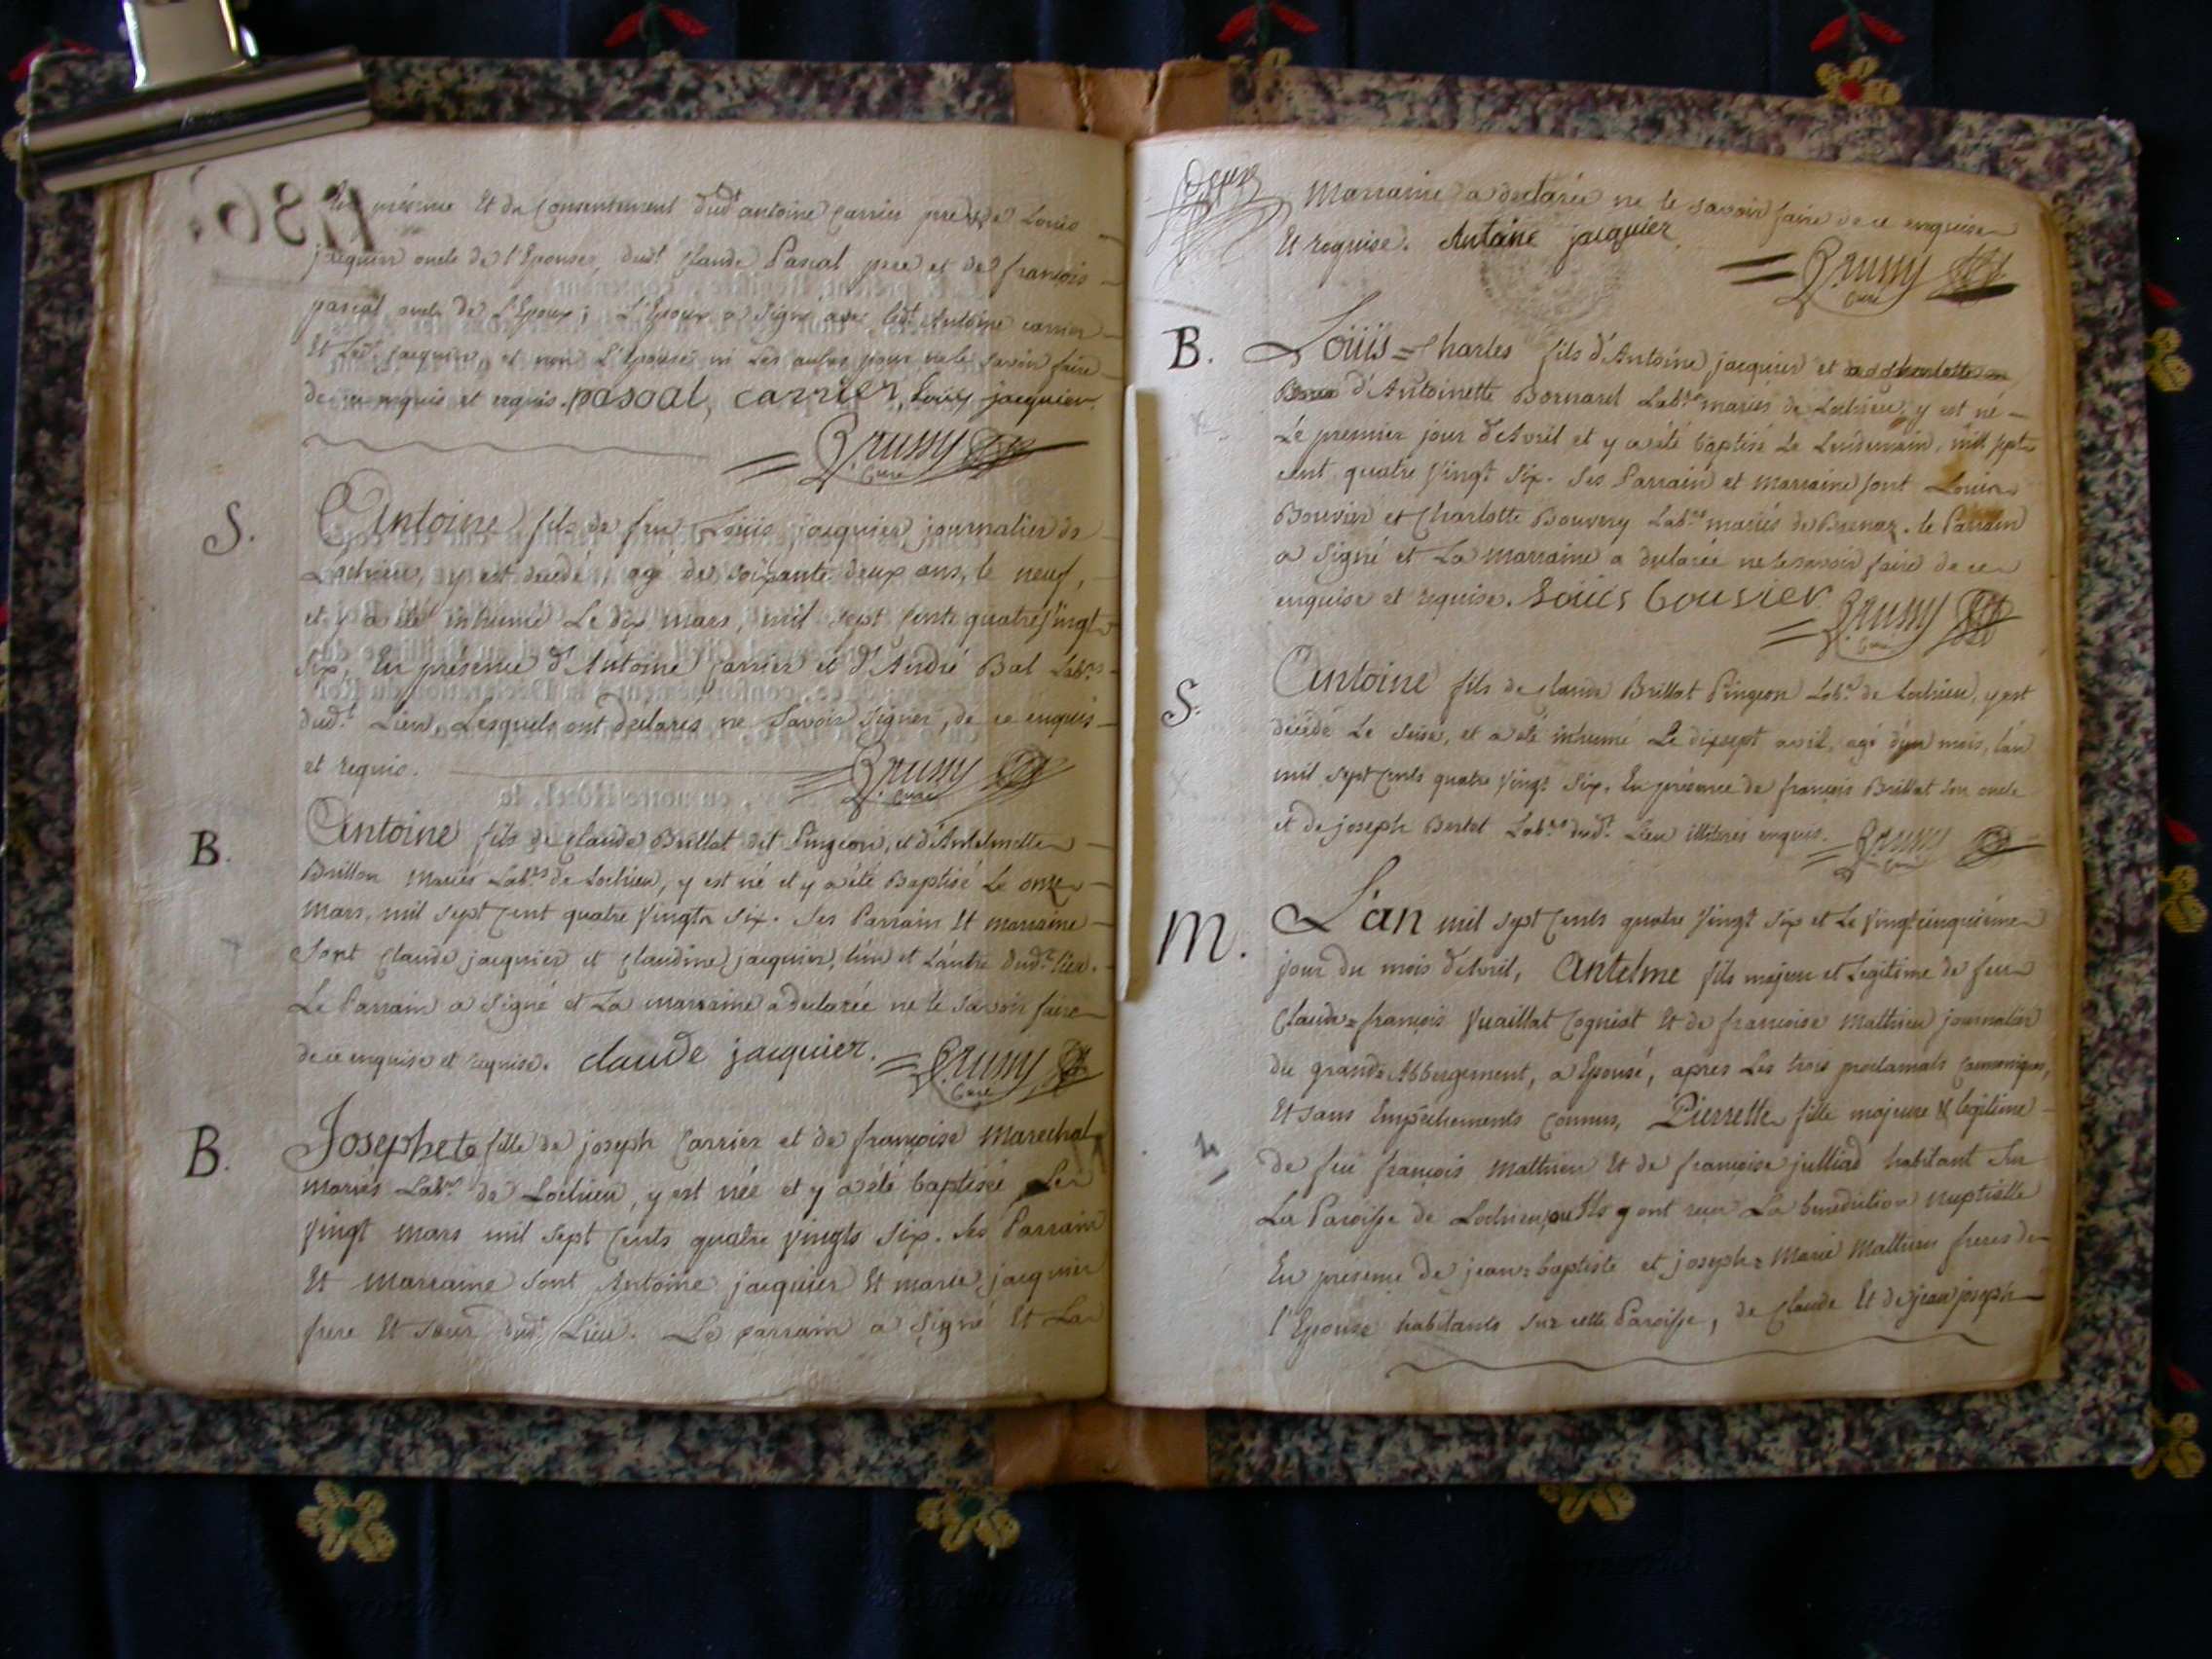 En présence Et du Consentement dudt antoine Carrier pere, de Louis
jacquier oncle de l'Epouse, dudt Claude Pascal pere et de françois
pascal oncle de l'Epoux; L'Epoux a signé avec ledt Antoine carrier
Et Ledt jacquier, et non L'Epouse ni Les autres pour ne le savoir faire
de ce enquis et requis. pascal, carrier, Louis jacquier.
Brunny
Curé
S.
Antoine fils de feu Louis jacquier journalier de
Lochieu, y est decedé, agé de soixante deux ans, le neuf,
et y a été inhumé Le dix mars, mil sept cents quatre vingt
six, En présence d'Antoine Carrier et d'André Bal Labrs
dudt Lieu, Lesquels ont declarés ne savoir signer, de ce enquis
et requis.
Brunny
Curé
B.
Antoine fils de Claude Brillat dit Pingeon, et d'Antelmette
Brillon Mariés Labrs de Lochieu, y est né et y a été Baptisé Le onze
Mars, mil sept Cent quatre vingt six. Ses Parrain Et marraine
sont Claude jacquier et Claudine jacquier, l'un et l'autre dudt lieu.
Le Parrain a signé et La marraine a declarée ne le savoir faire
de ce enquise et requise. claude jacquier.
Brunny
Curé
B.
Josephete fille de joseph Carrier et de françoise Marechal
mariés Labrs de Lochieu, y est née et y a été baptisée Le
vingt mars mil sept Cents quatre vingts six. Ses Parrain
Et Marraine sont Antoine jacquier Et marie jacquier
frere Et sœur dudt Lieu. Le parrain a signé Et La
Marraine a declarée ne le savoir faire de ce enquise
Et requise. Antoine jacquier
Brunny
Curé
B.
Loüis = Charles fils d'Antoine jacquier et
d'Antoinette Bornard Labrs mariés de Lochieu, y est né
Le premier jour d'Avril et y a été baptisé Le Lendemain, mil sept
cent quatre vingt six. Ses Parrain et Marraine sont Louis
Bouvier et Charlotte Bouvery Labrs mariés de Brenaz. le Parrain
a signé et La Marraine a declarée ne le savoir faire de ce
enquise et requise. Louis bouvier
Brunny
Curé
S.
Antoine fils de Claude Brillat Pingeon Labr de Lochieu, y est
décédé Le seise, et a été inhumé Le dixsept avril, agé d'un mois, l'an
mil sept Cents quatre vingt six, En présence de françois Brillat son oncle
et de joseph Bertet Labrs dudt Lieu illiterés enquis.
Brunny
Curé
M.
L'an mil sept Cents quatre vingt six et Le vingtcinquième
jour du mois d'Avril, Antelme fils majeur et Legitime de feu
Claude=françois Vuaillat Cogniat Et de françoise Mathieu journalier
du grand=Abbergement, a Epousé, après Les trois proclamats Canoniques,
Et sans Empêchements Connus, Pierrette fille majeure & legitime
de feu françois Mathieu Et de françoise julliad habitant sur
La Paroisse de Lochieu, ou Ils y ont reçu La benediction nuptialle
En presence de jean=baptiste et joseph=Marie Mathieu freres de
l'Epouse habitants sur cette Paroisse, de Claude Et de jean joseph